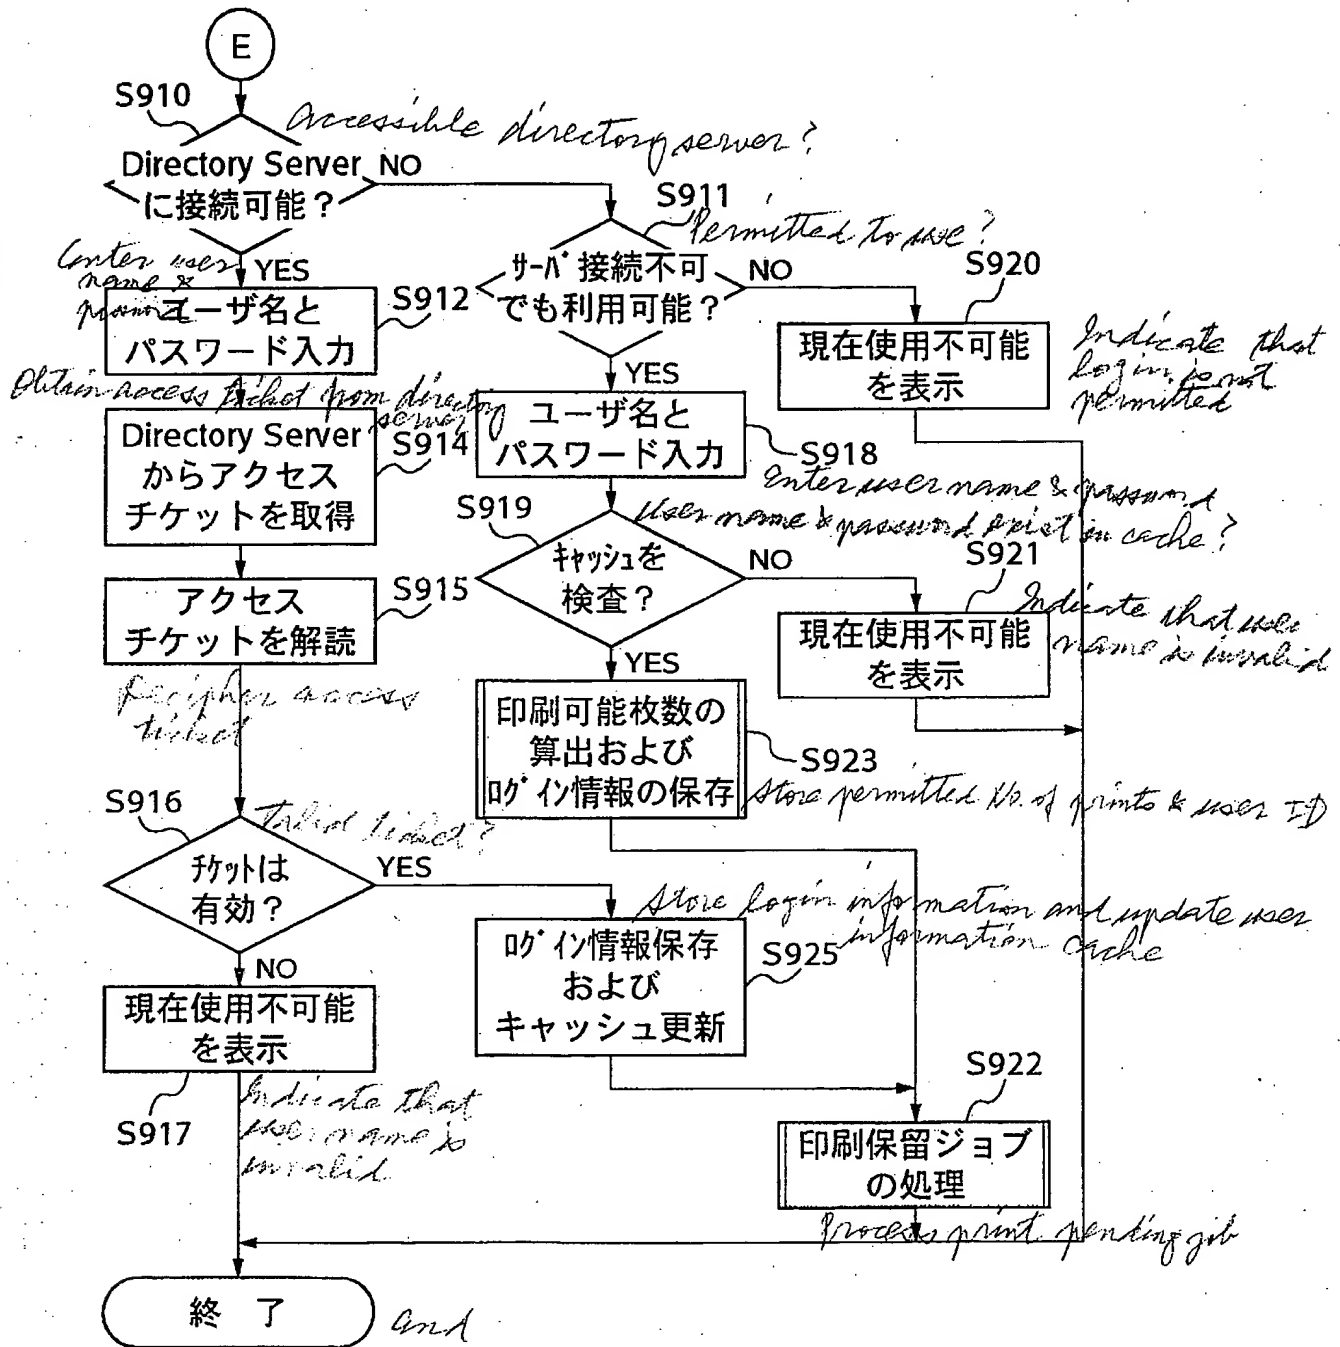 E
S910
Accessible directory server?
Directory Server
に接続可能？
NO
S911
Permitted to use?
Enter user
name &
password
YES
ｻｰﾊﾞ接続不可
でも利用可能？
NO
S920
ユーザ名と
パスワード入力
S912
現在使用不可能
を表示
Indicate that
login is not
permitted
YES
Obtain access ticket from directory
server
Directory Server
からアクセス
チケットを取得
S914
ユーザ名と
パスワード入力
S918
Enter user name & password
S919
User name & password exist in cache?
ｷｬｯｼｭを
検査？
NO
S921
アクセス
チケットを解読
S915
現在使用不可能
を表示
Indicate that user
name is invalid
YES
Decipher access
ticket
印刷可能枚数の
算出および
ﾛｸﾞｲﾝ情報の保存
S923
Store permitted No. of prints & user ID
S916
Valid ticket?
ﾁｹｯﾄは
有効？
YES
Store login information and update user
information cache
ﾛｸﾞｲﾝ情報保存
および
キャッシュ更新
S925
NO
現在使用不可能
を表示
S917
Indicate that
user name is
invalid
S922
印刷保留ジョブ
の処理
Process print pending job
終 了
end